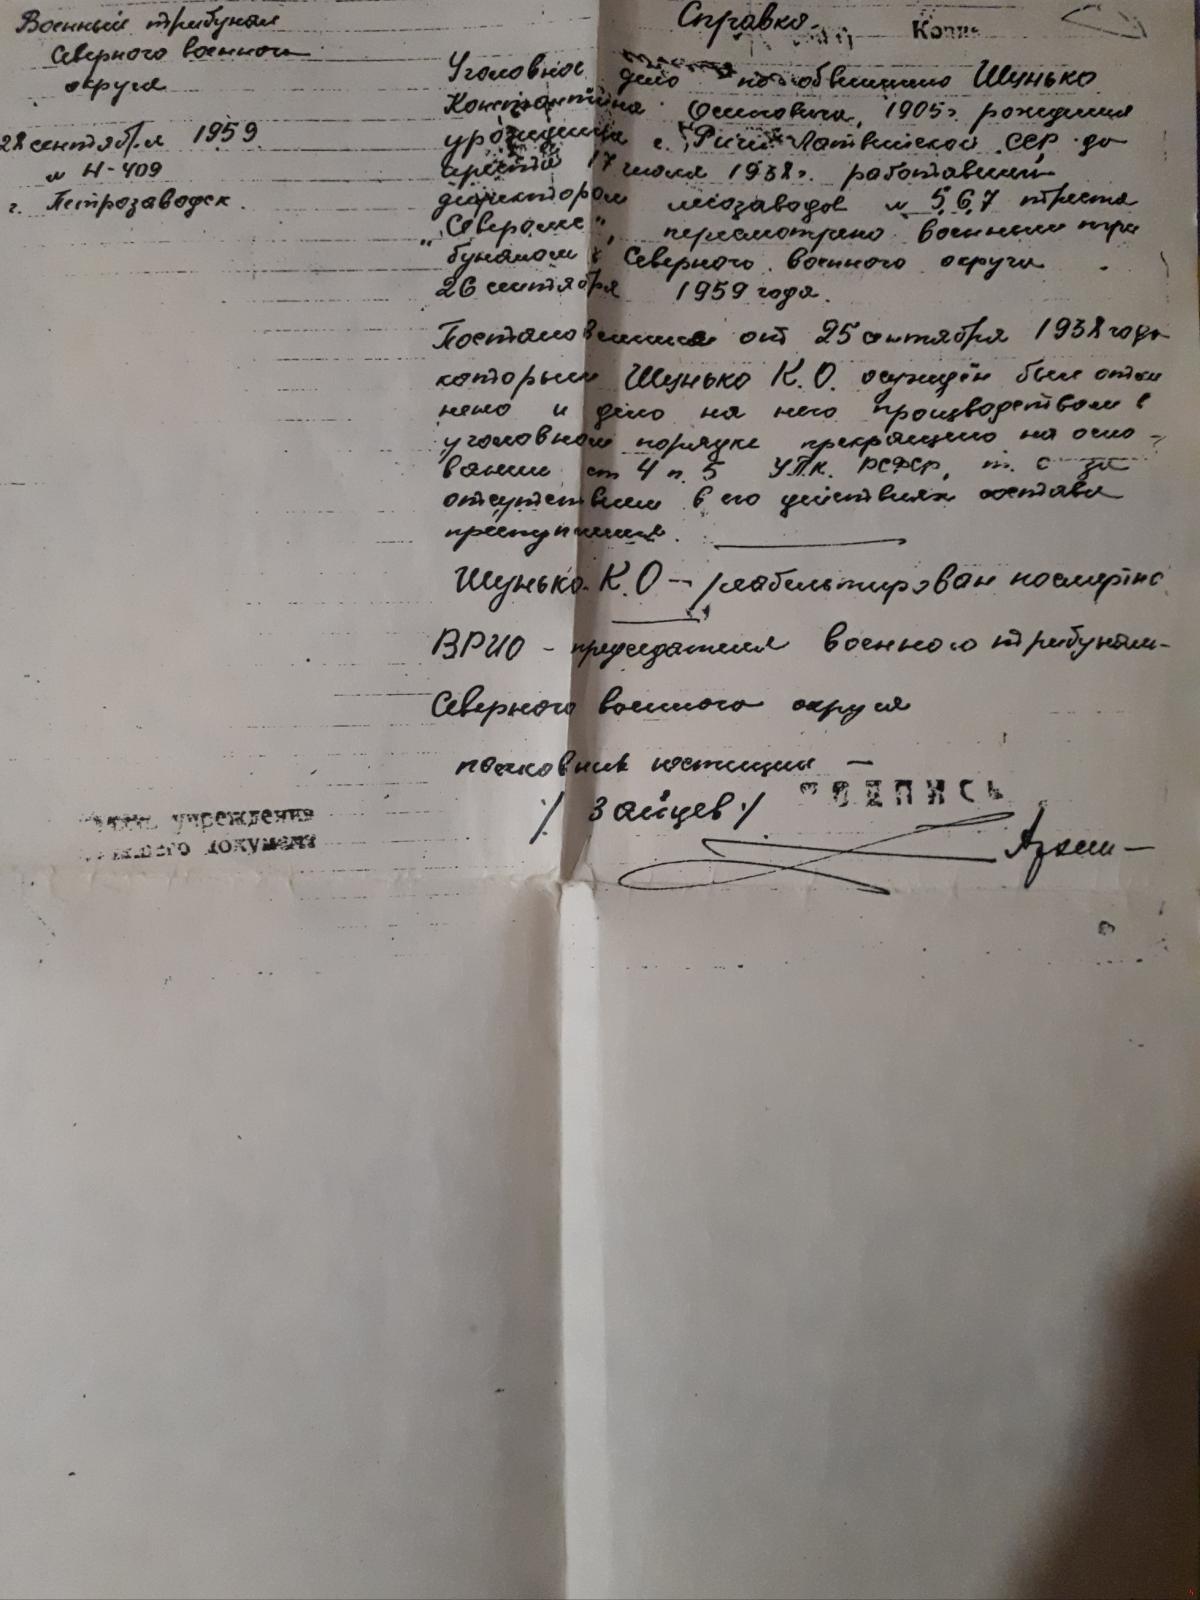 Военный трибунал
Северного военного
округа
28 сентября 1959
№ Н-409
г. Петрозаводск.
Справка.
Копия
Уголовное дело по обвинению Шунько
Константина Осиповича, 1905г. рождения
уроженца г. "Риги" Латвийской ССР до
ареста 17 июля 1938г. работавший
директором лесозаводов № 5,6,7 треста
"Северолес", пересмотрено военным три
буналом Северного военного округа
26 сентября 1959 года.
Постановление от 25 сентября 1938 года
которым Шунько К.О. осуждён был отме
нено и дело на него производством в
уголовном порядке прекращено на осно-
вании ст 4 п. 5 УПК. РСФСР, т. е за
отсутствием в его действиях состава
преступления.
Шунько К.О – реабилитирован посмертно
ВРИО - председателя военного трибунала
Северного военного округа
полковник юстиции –
/ Зайцев /
ПОДПИСЬ
учреждения
документ